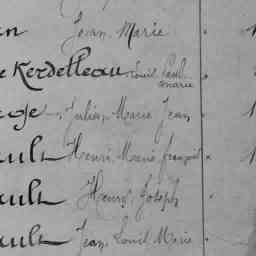 Jean Marie
e Kerdelleau Louis Paul
Marie
Julien Marie Jean
ault Henri Marie François
ault Henri Joseph
ault Jean Louis Marie